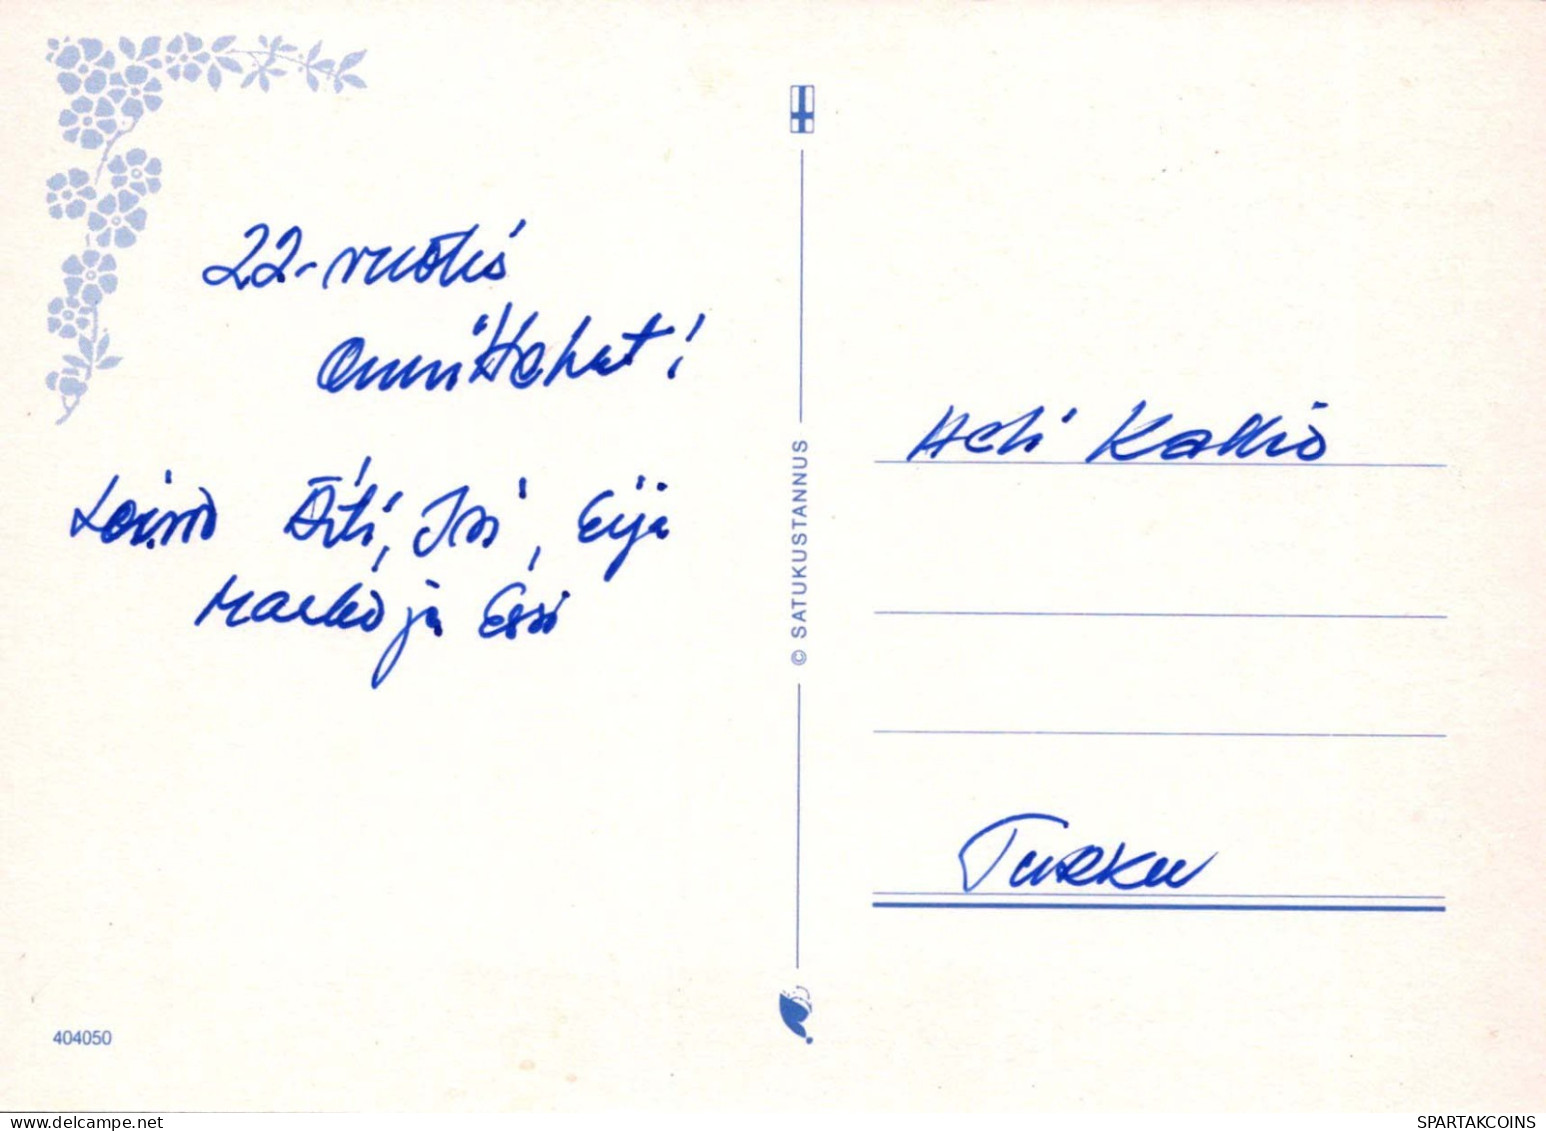 22-vuotis
onnittelut!
Toivoo Äiti, Isi, Eija
Marko ja Essi
© SATUKUSTANNUS
Heli Kallio
Turku
404050
delcampe.net
SPARTAKCOINS